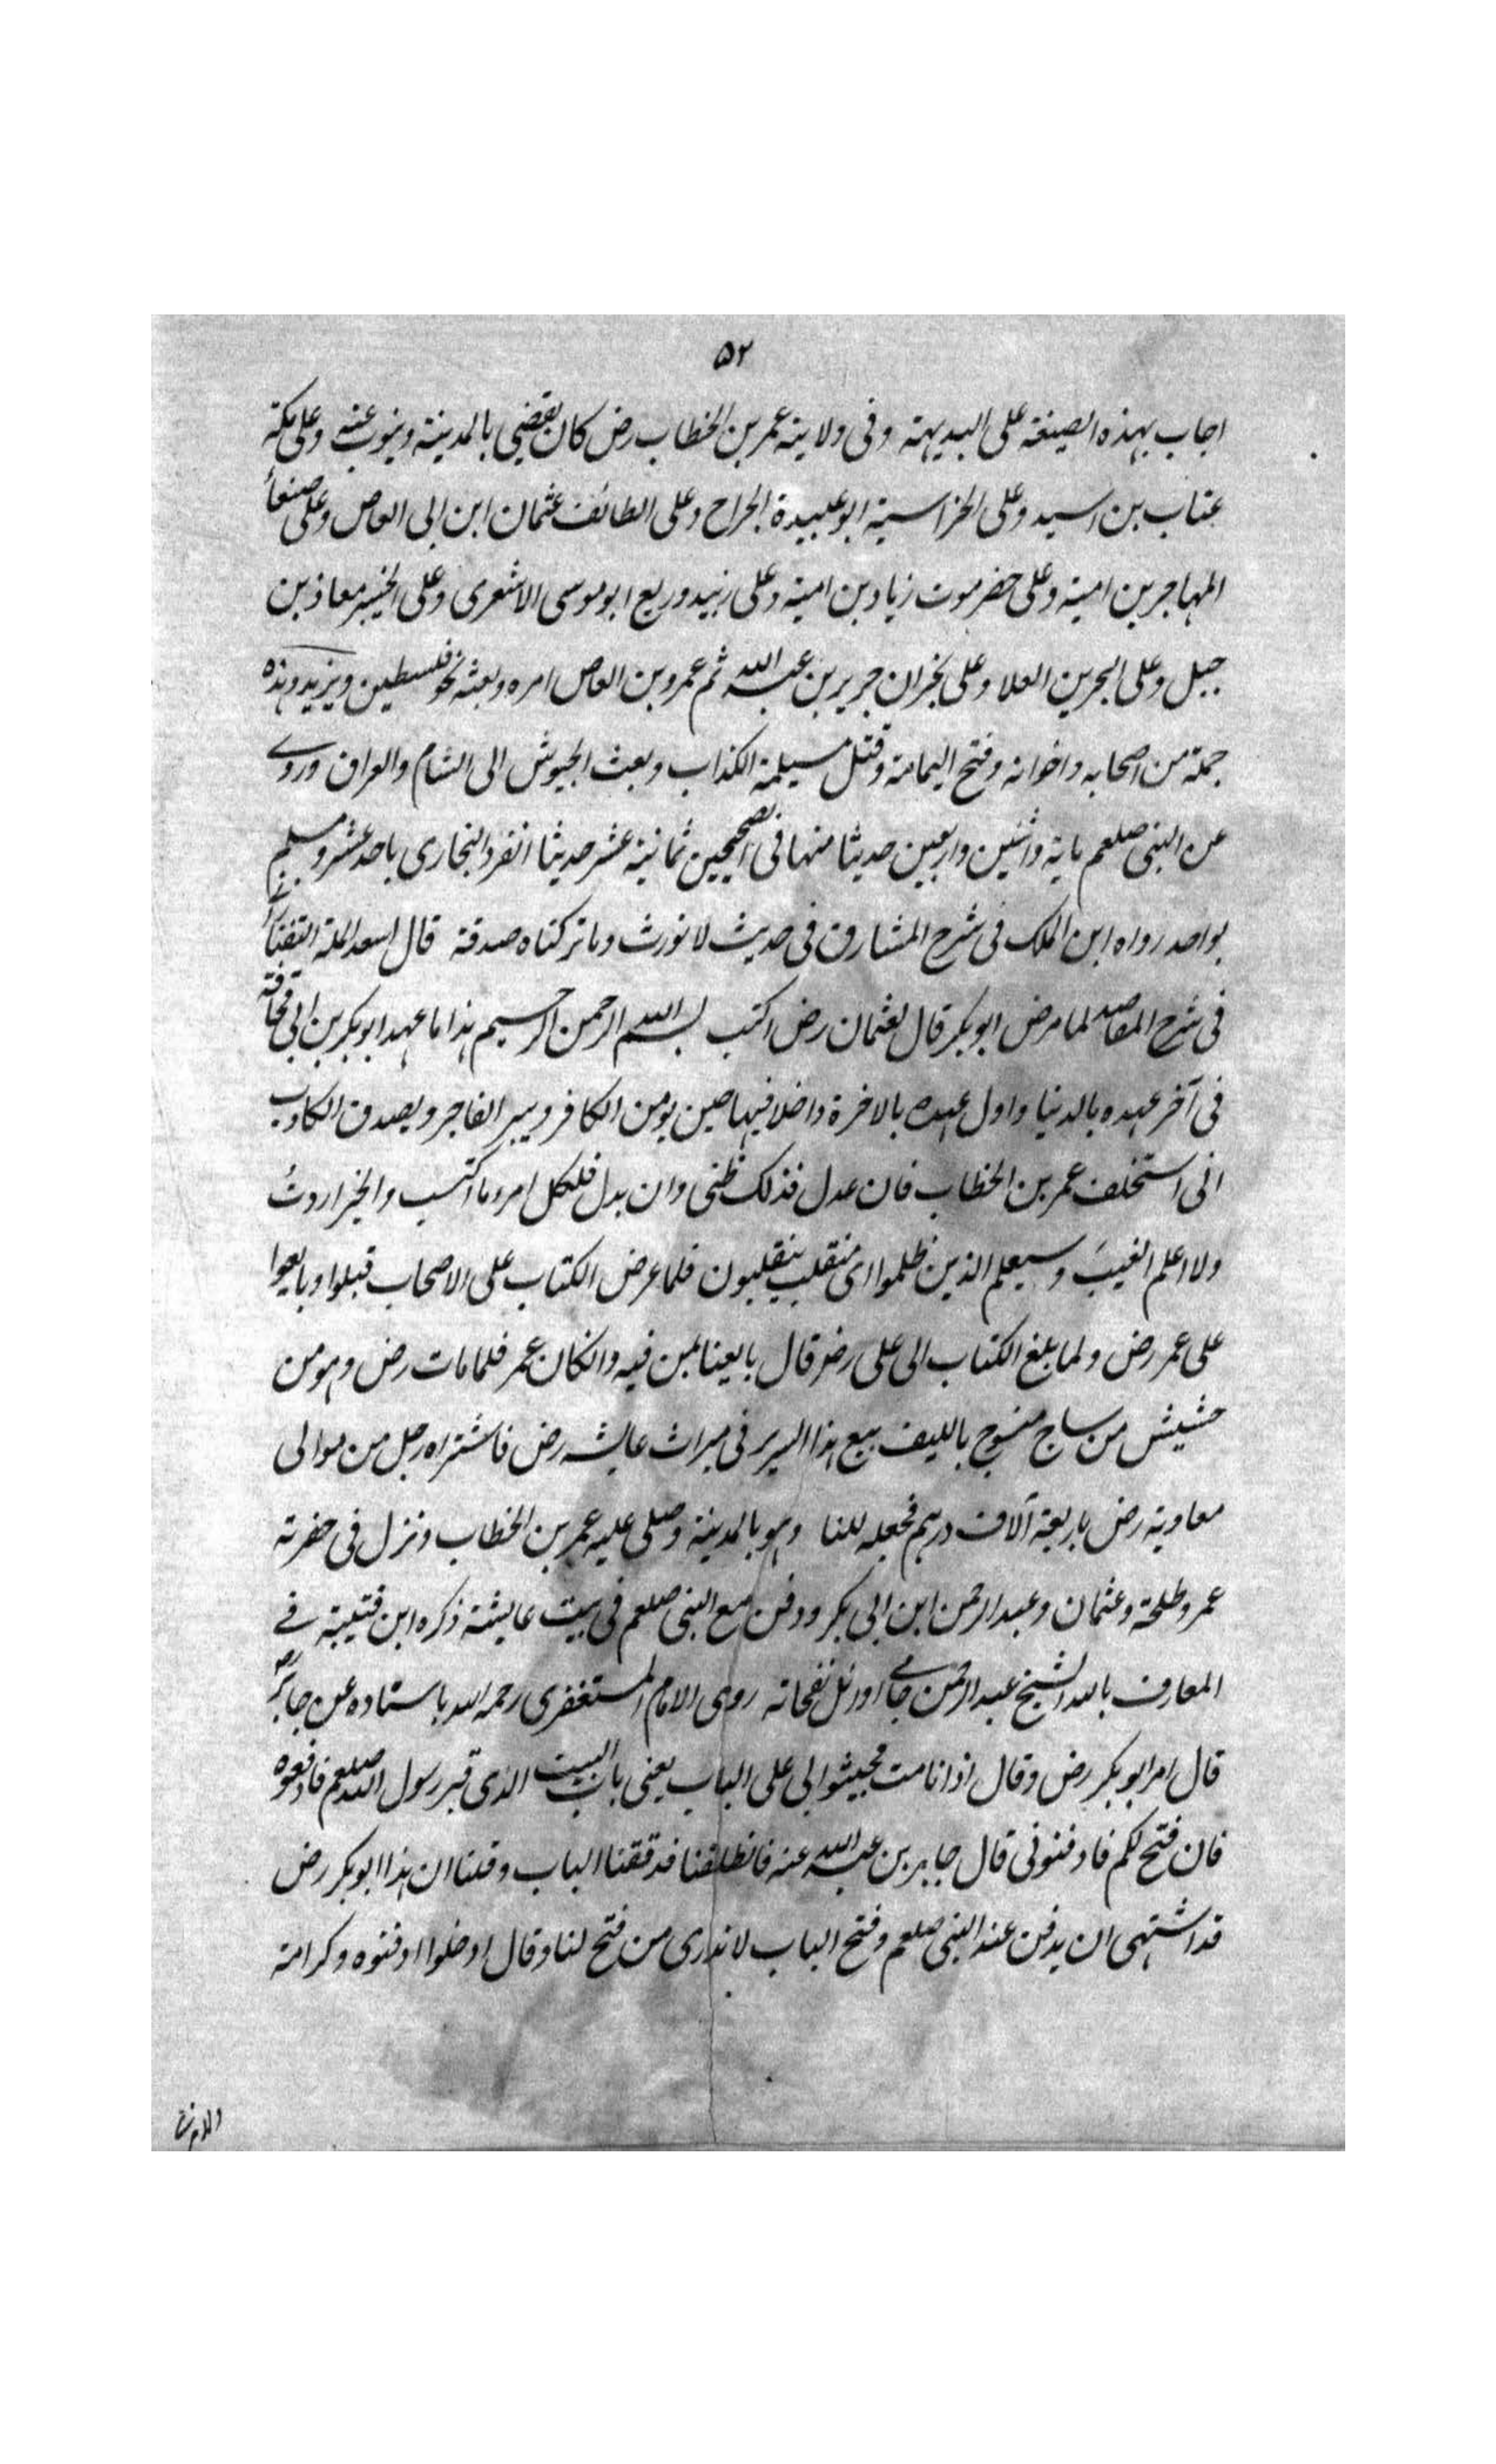 ۵۲
اجاب بهذه الصيغة على البديهة وفى ولاية عمر بن الخطاب رض كان يقضى بالمدينة وينوب عنه وعلى مكة
عتاب بن اسيد وعلى ابو عبيدة الجراح وعلى الطائف عثمان ابن ابى العاص وعلى صنعا
المهاجر بن امية وعلى حضرموت زياد بن امية وعلى زبيد وريع ابو موسى الاشعرى وعلى معاذ بن
جبل وعلى البحرين العلا وعلى نجران جرير بن عبد الله ثم عمرو بن العاص امره وبعثه نحو فلسطين ويزيد وهذه
جملة من اصحابه واخوانه وفتح اليمامة وقتل مسيلمة الكذاب وبعث الجيوش الى الشام والعراق وروى
عن النبى صلعم ماية واثنين واربعين حديثا منها فى الصحيحين ثمانية عشر حديثا انفرد البخارى باحد عشر ومسلم
بواحد رواه ابن الملك فى شرح المشارق فى حديث لا نورث وما تركناه صدقة قال اسعد الملة التفتا
فى شرح المقاصد لما مرض ابو بكر قال لعثمان رض اكتب بسم الله الرحمن الرحيم هذا ما عهد ابو بكر بن ابى قحافة
فى آخر عهده بالدنيا واول عهده بالاخرة داخلا فيها حين يومن الكافر ويبر الفاجر ويصدق الكاذب
انى استخلف عمر بن الخطاب فان عدل فذلك ظنى وان بدل فلكل امرء ما اكتسب والخير اردتُ
ولا اعلم الغيبَ وسيعلم الذين ظلموا اى منقلب ينقلبون فلما عرض الكتاب على الاصحاب قبلوا وبايعوا
على عمر رض ولما بلغ الكتاب الى على رض قال بايعنا لمن فيه وانكان عمر فلما مات رض وهو من
خشيش من ساج منسوج بالليف بيع هذا السرير فى ميراث عايشه رض فاشتراه رجل من موالى
معاوية رض باربعة آلاف درهم فجعله للنا وهو بالمدينة وصلى عليه عمر بن الخطاب ونزل فى حفرته
عمر وطلحة وعثمان وعبد الرحمن ابن ابى بكر ودفن مع النبى صلعم فى بيت عايشة ذكره ابن قتيبة فے
المعارف بالله الشيخ عبد الرحمن جامے اورد نفحاته روى الامام المستغفرى رحمه الله باستاده عن جابر رض
قال امر ابو بكر رض وقال اذا انا مت فجيئوا بى على الباب يعنى باب البيت الذى قبر رسول الله صلعم فادفعوه
فان فتح لكم فادفنونى قال جابر بن عبد الله عنه فانطلقنا فدققنا الباب وقلنا ان هذا ابو بكر رض
قد اشتهى ان يدفن عند النبى صلعم وفتح الباب لا ندرى من فتح لنا وقال ادخلوا ادفنوه وكرامة